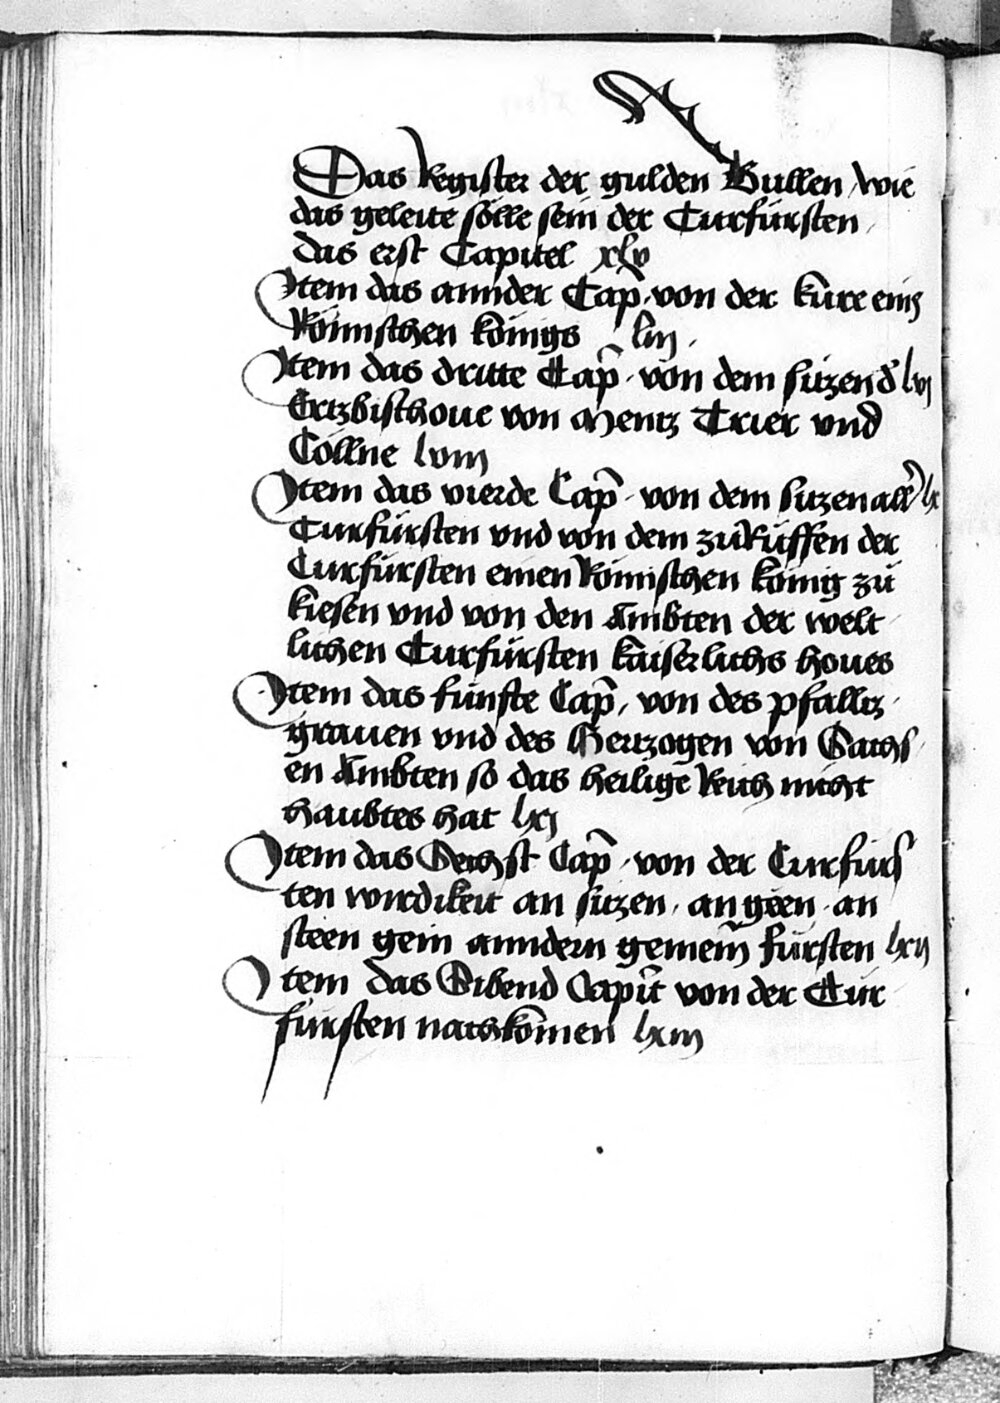 Das Register der gulden Bullen / wie
das geleite sölle sein der Curfürsten /
das erst Capitel xlv
Item das annder Cap̃ · von der kũre eins
Römischen kõnigs liij /
Item das dritte Cap̃ · von dem sitzend̾ lvj
Ertzbischoue von Mentz Trier vnd
Cöllne lviij
Item das vierde Cap̃ · von dem sitzen all̾ lx
Curfürsten vnd von dem zůkůffen der
Curfürsten einen Römischen kõnig zů
kiesen vnd von den Ämbten der welt
lichen Curfürsten kaiserlichs houes
Item das fünfte Cap̃ / von des pfalltz
grauen vnd des Hertzogen von Sachs /
en Ämbten so das heilige Reich nicht
haubtes hat lxj
Item das Sechst Cap̃ / von der Curfürs
ten wirdikeit an sitzen / an geen / an
steen gein anndern gemein̄ fürsten lxij
Item das Sibend Capit̃ von der Cur
fürsten nachkõmen lxiij